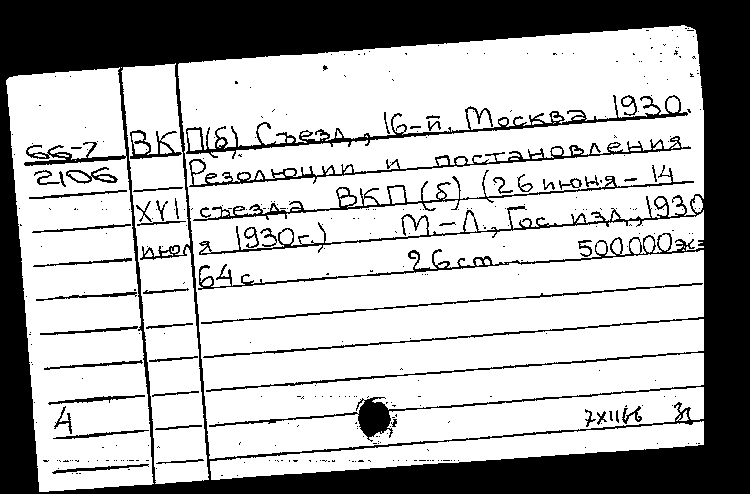 66-7 ВКП(б). Съезд, 16-й. Москва. 1930.
2106 Резолюции и постановления
XVI съезда ВКП(б) (26 июня - 14
июля 1930г.) М.-Л., Гос. изд., 1930
64 с. 26 cm. 500000 экз
А
7XII66